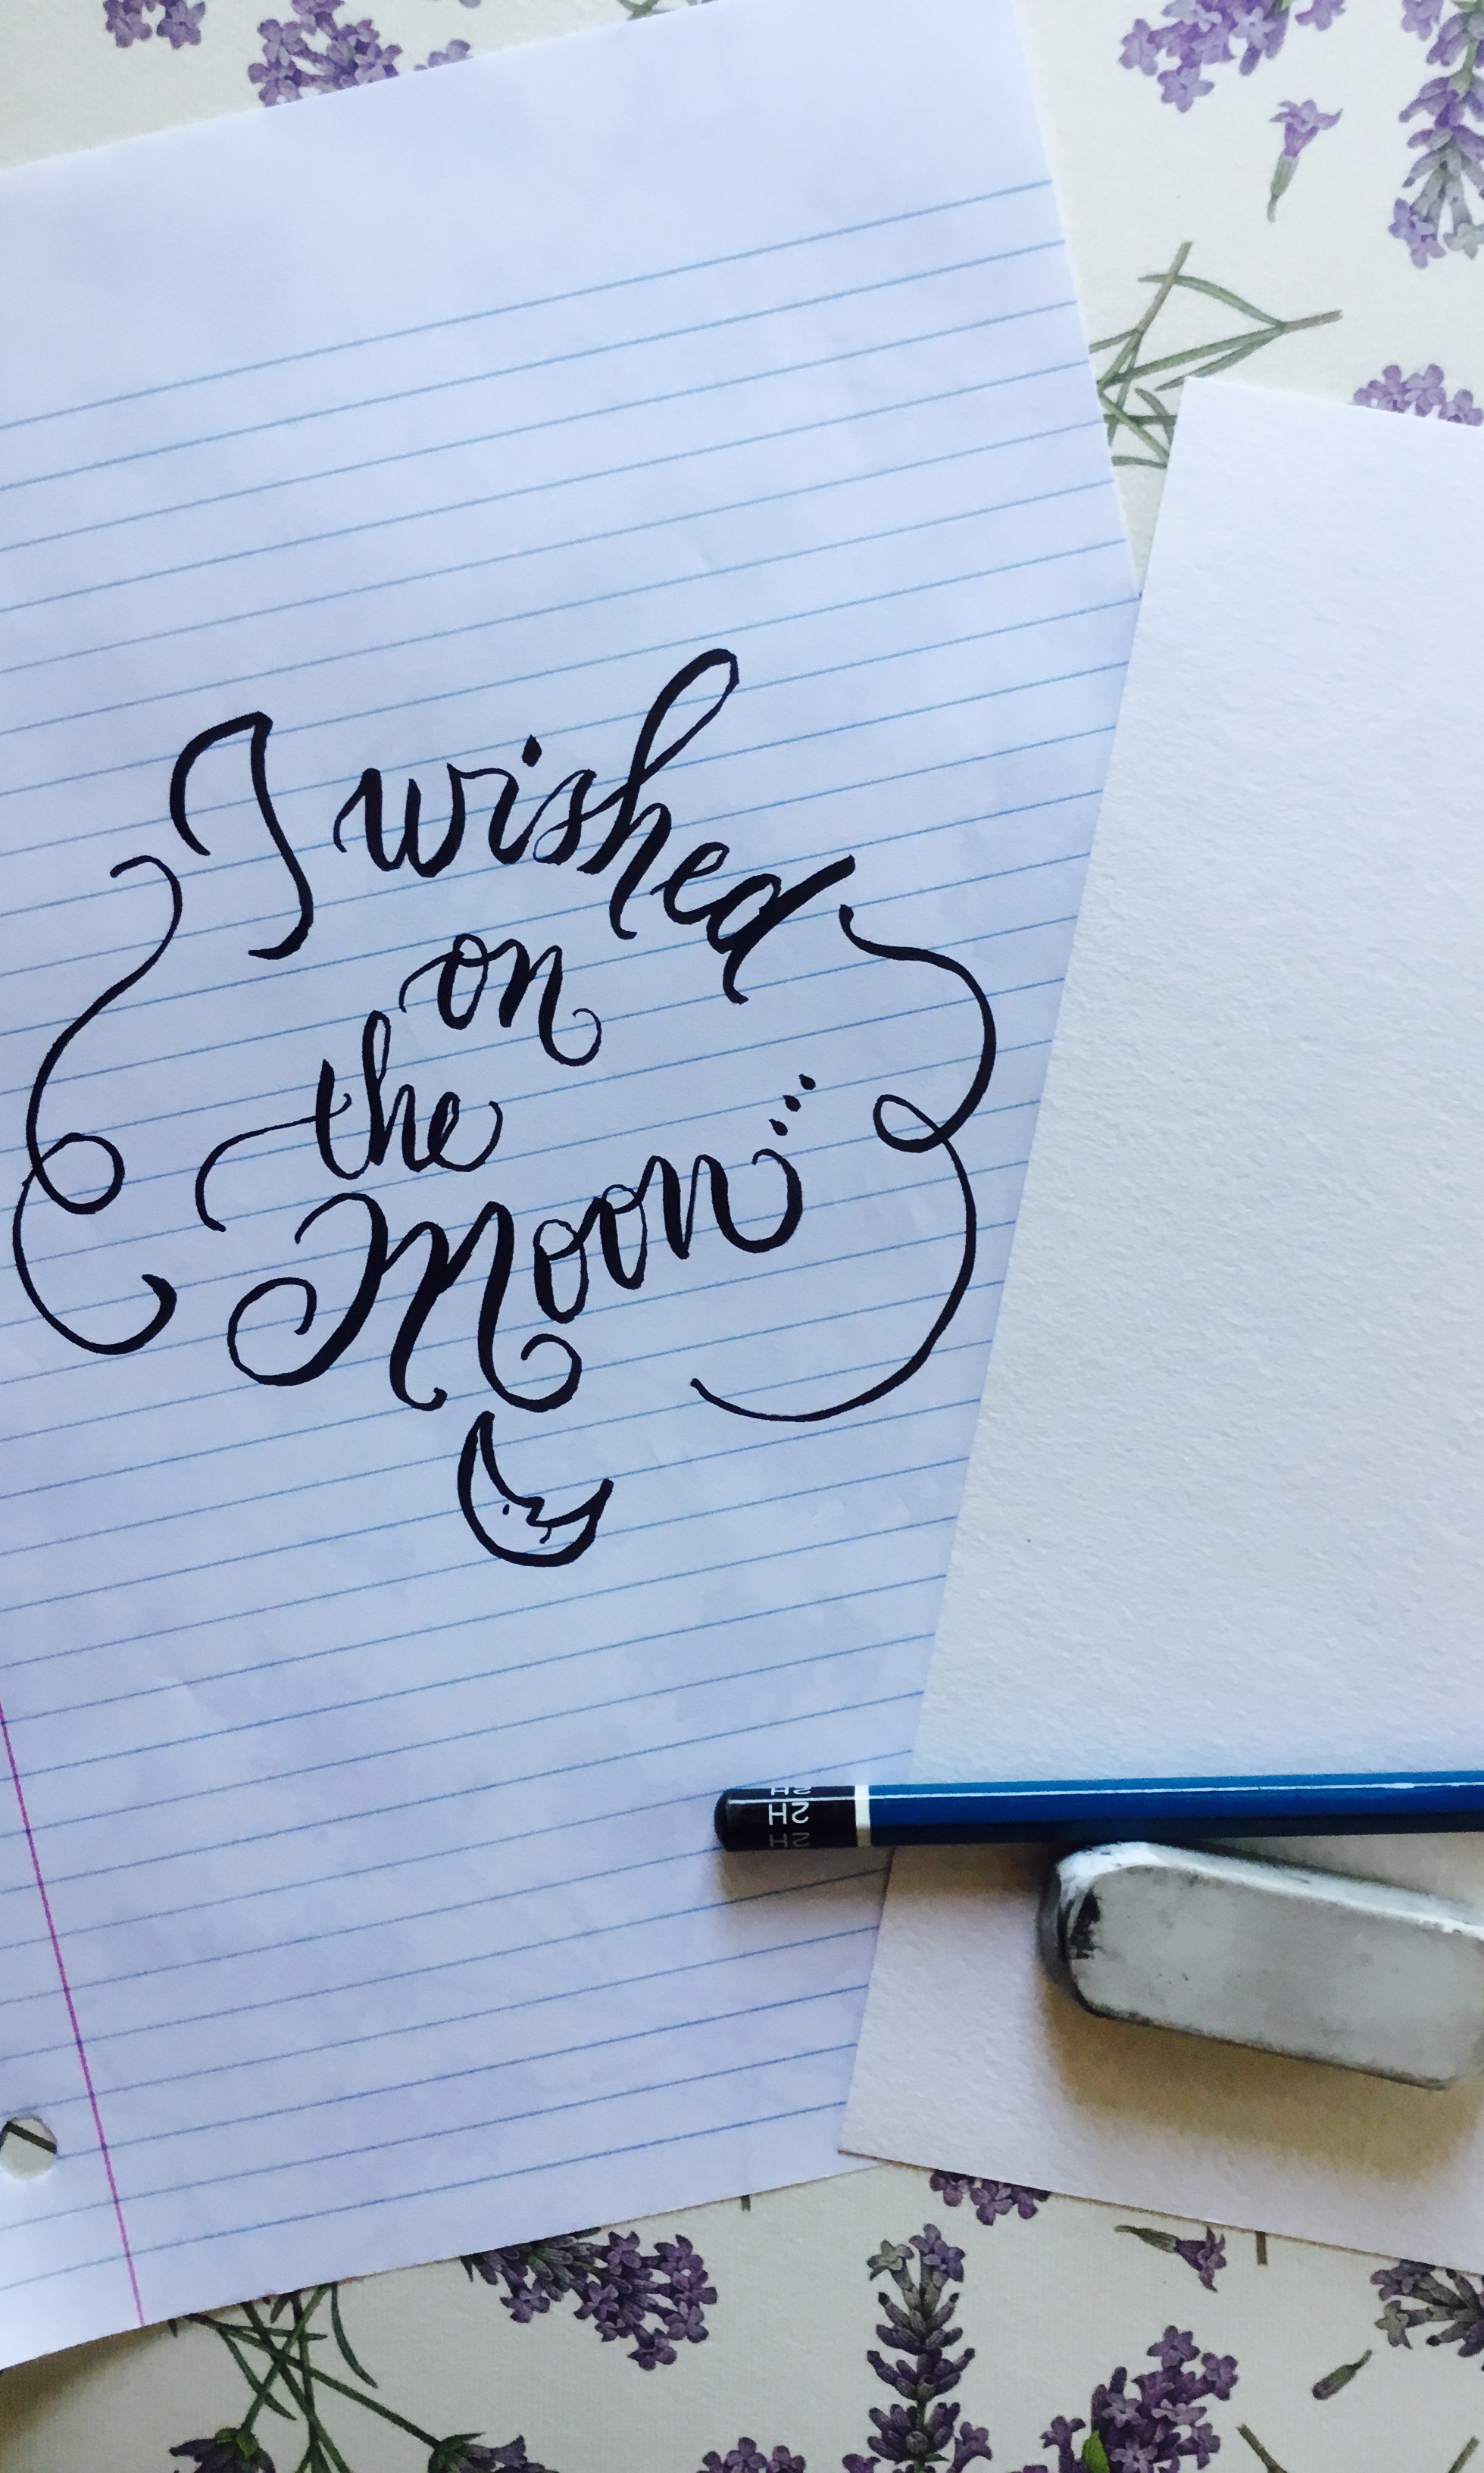 I wished
on
the
Moon...
2H
2H
2H